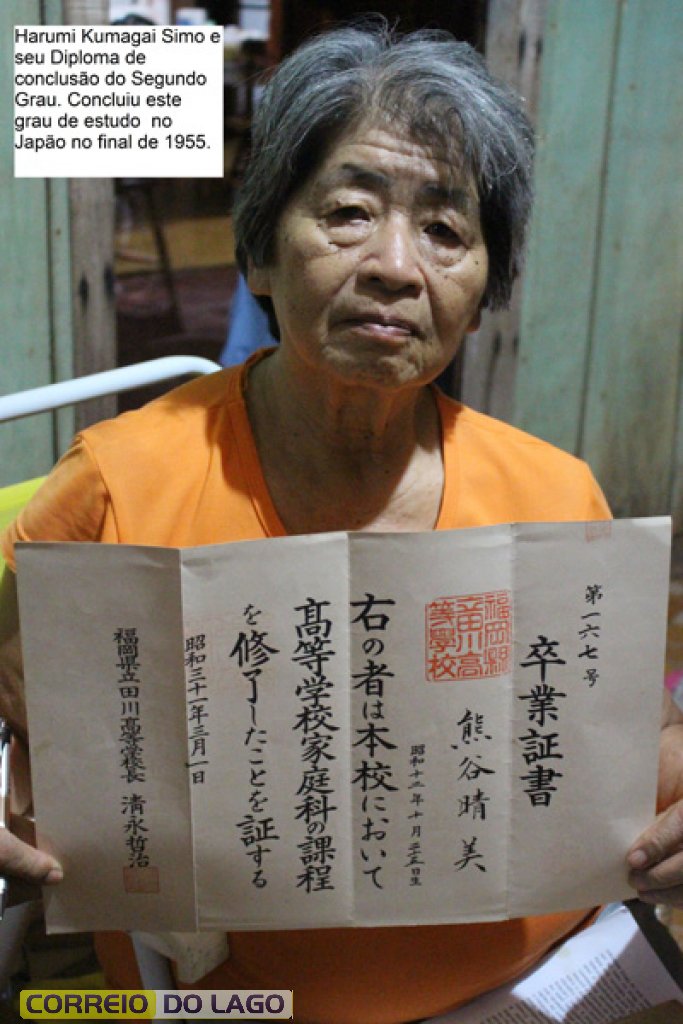 Harumi Kumagai Simo e
seu Diploma de
conclusão do Segundo
Grau. Concluiu este
grau de estudo no
Japão no final de 1955.
第一六七号
卒業証書
福岡縣
立田川高
等學校
熊谷晴美
昭和十二年十月二三日生
右の者は本校において
高等学校家庭科の課程
を修了したことを証する
昭和三十一年三月一日
福岡県立田川高等学校長 清永哲治
CORREIO DO LAGO